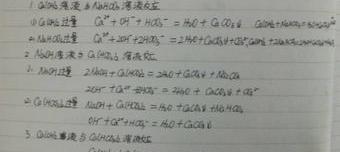 1. Ca(OH)₂溶液与NaHCO₃溶液反应
① Ca(OH)₂过量 Ca²⁺+OH⁻+HCO₃⁻=H₂O+CaCO₃↓
② NaHCO₃过量 Ca²⁺+2OH⁻+2HCO₃⁻=2H₂O+CaCO₃↓+CO₃²⁻
2. NaOH溶液与Ca(HCO₃)₂溶液反应
① NaOH过量 2NaOH+Ca(HCO₃)₂=2H₂O+CaCO₃↓+Na₂CO₃
2OH⁻+Ca²⁺+2HCO₃⁻=2H₂O+CaCO₃↓+CO₃²⁻
② Ca(HCO₃)₂过量 NaOH+Ca(HCO₃)₂=H₂O+CaCO₃↓+NaHCO₃
OH⁻+Ca²⁺+HCO₃⁻=H₂O+CaCO₃↓
3. Ca(OH)₂溶液与Ca(HCO₃)₂溶液反应